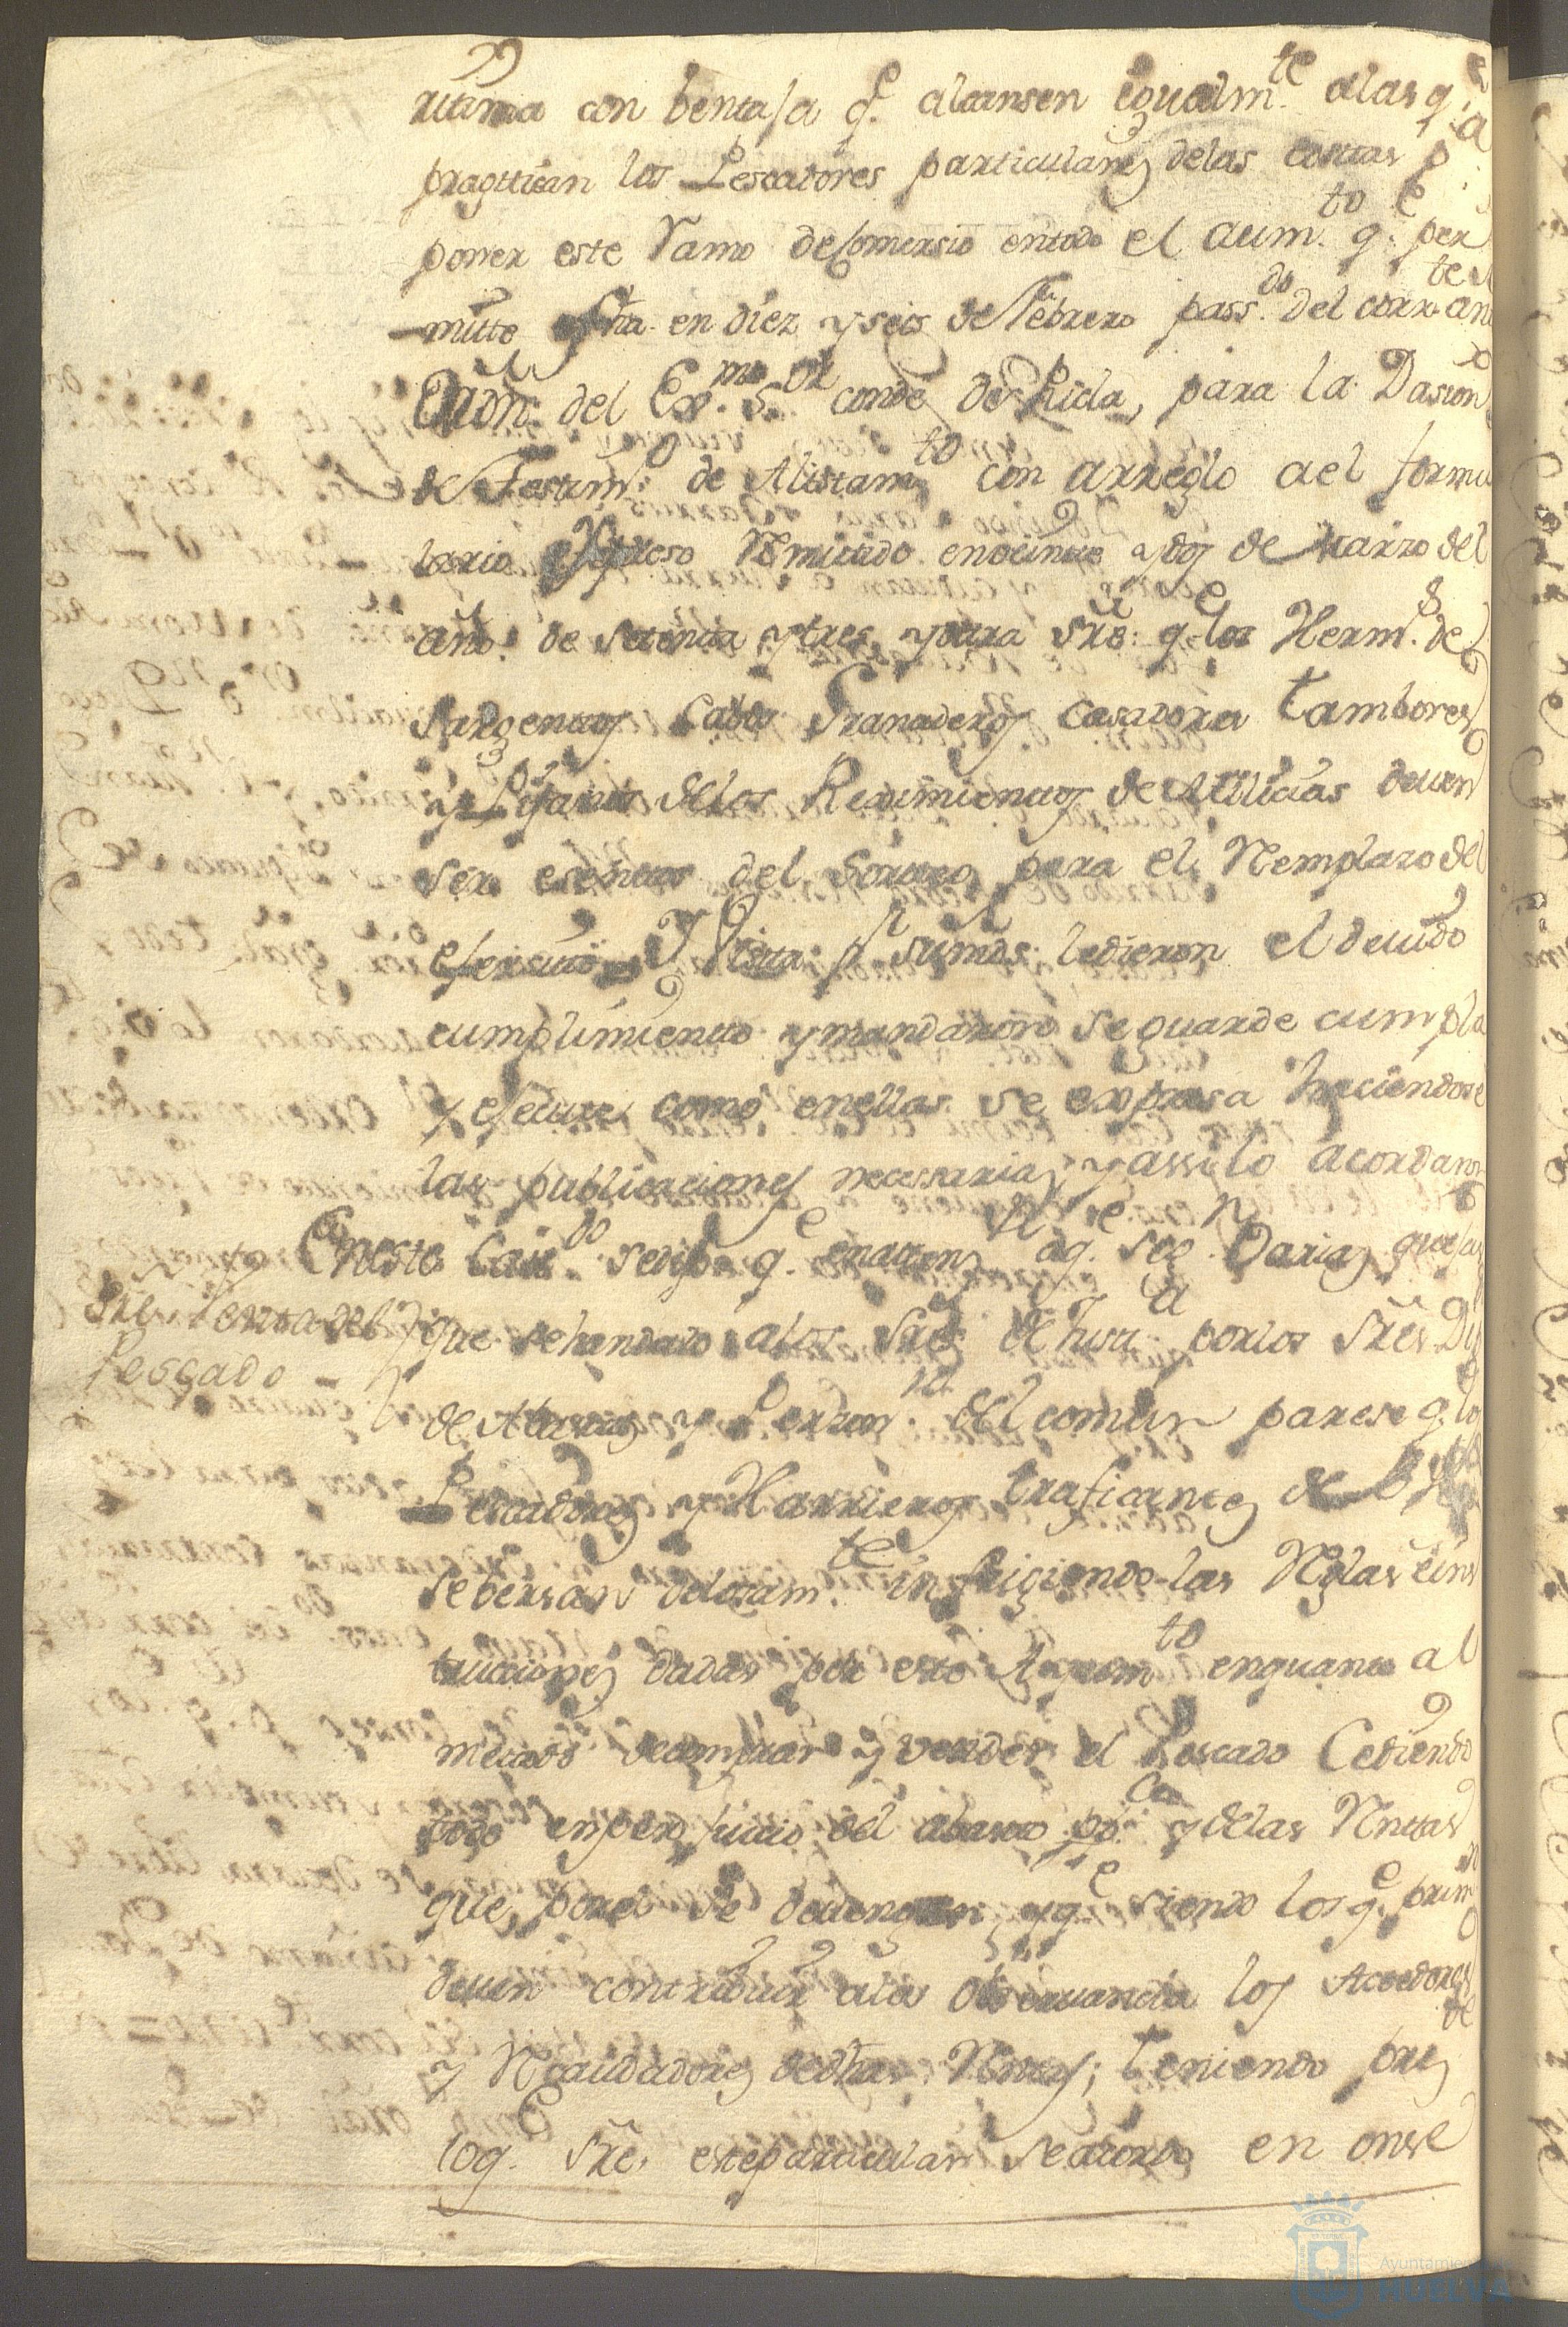 ritima con bentaja q.e alcansen igualm.te alas q.e
pragttican los Pescadores particulares delas costas p.a
poner este Ramo de Comersio entodo el aum.to q.e per
mitte fha. en diez y seis de Febrero pass.do del corr.te an
Orđn. del Ex.mo S.or conde de Ricla, para la Dasion
de Testim.o de Alistam.to con arreglo ael formu
lario Ympreso Remitido en veinte y dos de Marzo del
año. de setenta y tres, y otra sre: q.e los Herm.s de
Sargentos Cabos Granaderos Casadores Tambores
y Pifanos delos Regimientos de Milicias deven
ser esentos del Sorteo para el Remplazo del
efercito Y Vista p.r sumds. ledieron el devido
cumplimiento y mandaron se guarde cumpla
y efecute como enellas se expresa haciendose
las publicaciones necessarias y assi lo acordaron
Eneste Cav.do sedijo q.e enatten.n aq.e son Varias quejas
Sre. Venta del
Pescado
que sehandado alos Sres de Just.a porlos Sres. Dip
de Abastos y Perzon.ro del comun parese q.e los
Pescadores y Harrieros traficantes de
sebersan dolosam.te infrigiendo las Reglas e ins
trucciones dadas por este Ayuntam.to enquanto al
metodo decomprar y vender el Pescado Cediendo
todo enperjuicio del abasto pb.co y delas Renttas
que porel se devengan, y q.e siendo los q.e prim.o
deven contribuir ala observancia los Acedores
y Recaudadores dedhas Renttas; teniendo pres.te
loq.e Sre. esteparticular seacordo en onse
Ayuntamiento
HUELVA